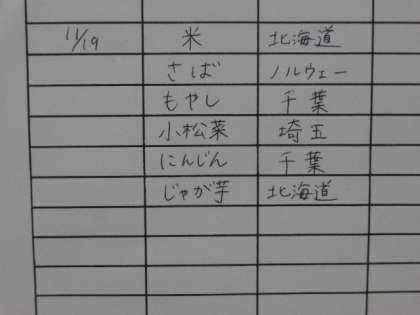 11/19 米 北海道
さば ノルウェー
もやし 千葉
小松菜 埼玉
にんじん 千葉
じゃが芋 北海道